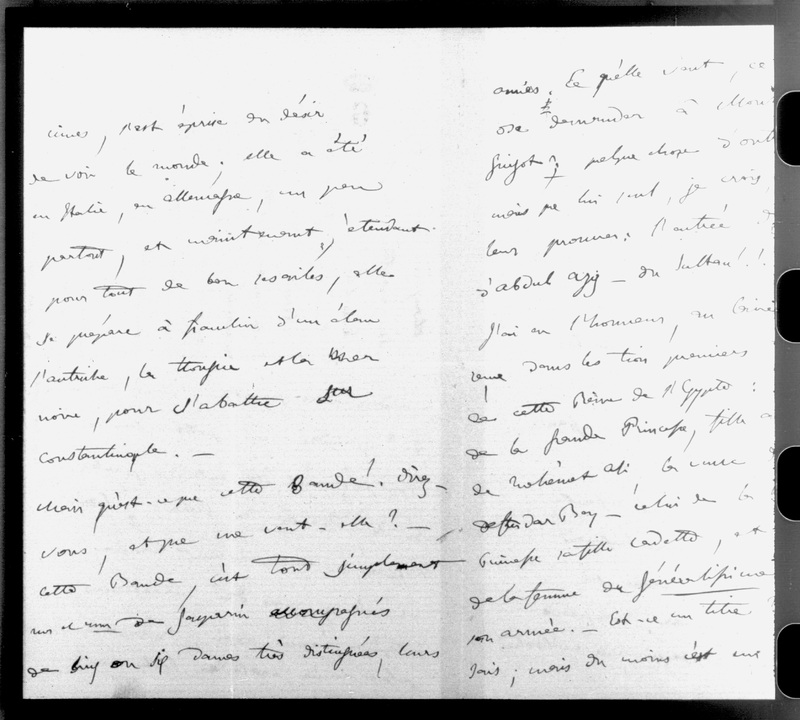 cimes, s'est éprise du désir
de voir le monde ; elle a été
en Italie, en Allemagne, un peu
partout, et maintenant, s'étendant
pour tout de bon ses ailes, elle
se prépare à franchir d'un élan
l'autriche, la Hongrie et la mer
noire, pour s'abattre sur
Constantinople. —
Mais qu'est-ce que cette Bande ! direz-
vous, et que me veut-elle ? —
cette Bande, c'est tout simplement
mr et mme de Gasparin accompagnés
de cinq ou six dames très distinguées, leurs
amies. Ce qu'elle veut, ce
ose demander à
Guizot ? quelque chose
mais que lui seul, je crois,
leur procurer : l'entrée
d'abdul azis — du Sultan ! !
J'ai eu l'honneur, en
dans les trois premiers
de cette Reine de l'Egypte :
de la grande Princesse, fille
de Mohémet Ali, la veuve
defterdar Bey — celui de la
Princesse sa fille cadette, et
de la femme du généralissime
son armée. — Est-ce un titre ?
sais ; mais du moins c'est une